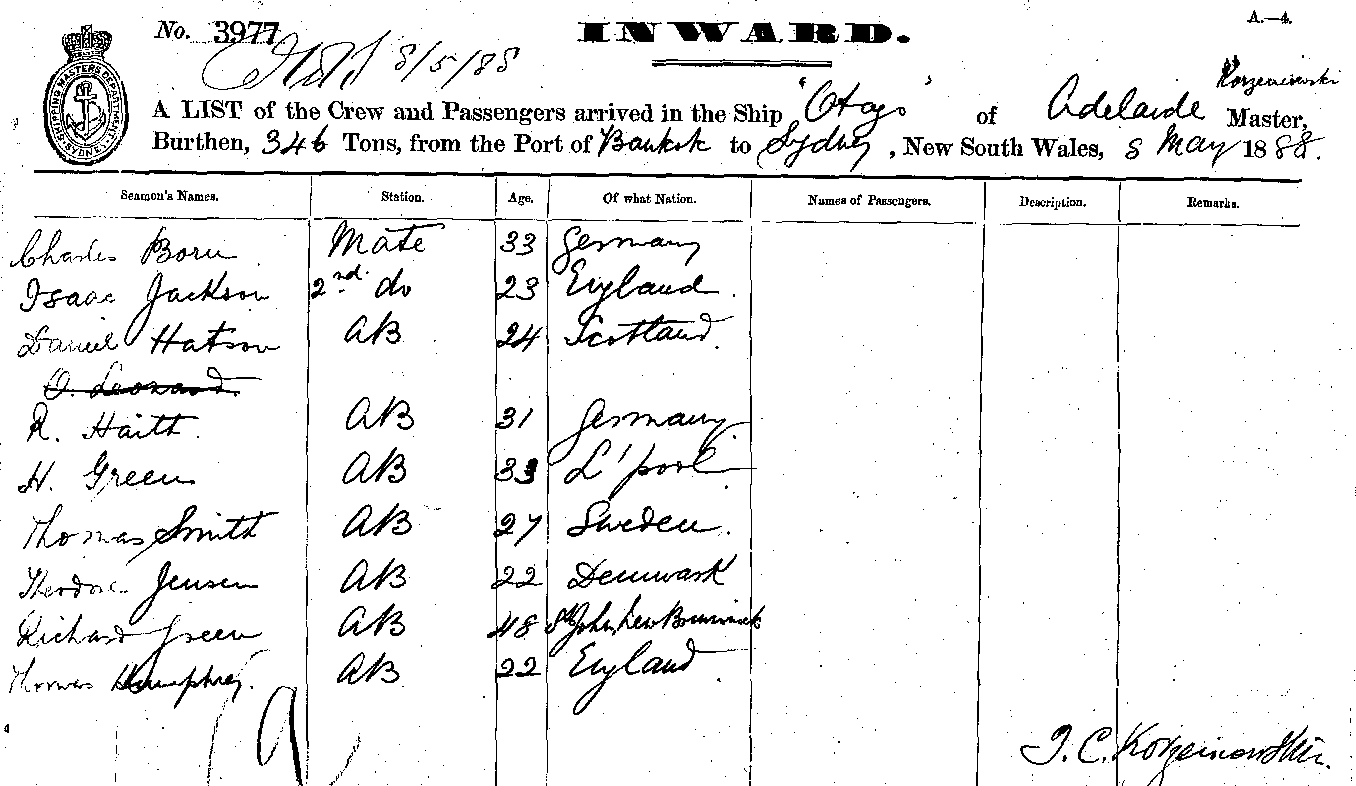 A.—4.
No. 3977 INWARD.
8/5/88
Korzeniowski
A LIST of the Crew and Passengers arrived in the Ship "Otago" of Adelaide Master,
Burthen, 346 Tons, from the Port of Bankok to Sydney, New South Wales, 8 May 1888.
SHIPPING MASTERS DEPARTMENT SYDNEY
Seamen's Names. Station. Age. Of what Nation. Names of Passengers. Description. Remarks.
Charles Born Mate 33 Germany
Isaac Jackson 2nd. do 23 England.
Daniel Hatson AB 24 Scotland.
O. Leonard.
R. Haith. AB 31 Germany.
H. Green AB 33 L'pool
Thomas Smith AB 27 Sweden.
Theodore Jensen AB 22 Denmark
Richard Green AB 48 St John, New Brunswick
Thomas Humphrey. AB 22 England
9
J. C. Korzeniowski.